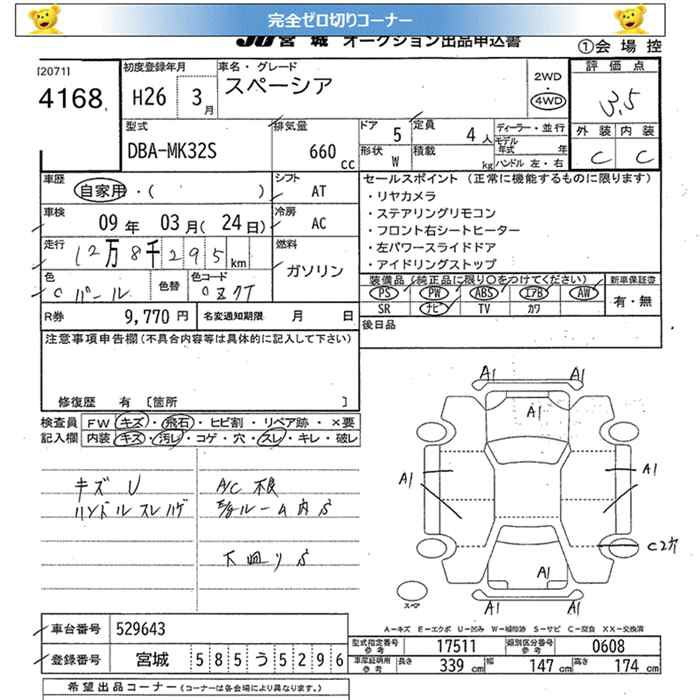 完全ゼロ切りコーナー
JU 宮城 オークション出品申込書
①会場控
[2071]
4168
初度登録年月
H26 3月
車名・グレード
スペーシア
2WD
4WD
評価点
3.5
外装 内装
C C
型式
DBA-MK32S
排気量
660 cc
ドア 5
定員 4人
形状 W
積載 kg
ディーラー・並行
モデル年式 年
ハンドル 左・右
車歴
自家用・( )
シフト
AT
車検
09年 03月(24日)
冷房
AC
走行
12万8千295km
燃料
ガソリン
色
パール
色替
色コード
R券 9,770円
名変通知期限 月 日
セールスポイント (正常に機能するものに限ります)
・リヤカメラ
・ステアリングリモコン
・フロント右シートヒーター
・左パワースライドドア
・アイドリングストップ
装備品(純正品に限り〇をつけてください)
PS PW ABS エアB AW
SR ナビ TV カワ
新車保証書
有・無
後日品
注意事項申告欄(不具合内容等は具体的に記入して下さい)
修復歴 有 [箇所 ]
検査員記入欄
FW キズ・飛石・ヒビ割・リペア跡・×要
内装 キズ・汚レ・コゲ・穴・スレ・キレ・破レ
キズ U
ハンドルスレハゲ
A/C 不良
ルーム内S
下廻りS
A1
A1
A1
A1
A1
C2
A1
A1
A1
スペア
A-キズ E-エクボ U-凹み W-補修跡 S-サビ C-腐食 XX-交換済
車台番号 529643
登録番号 宮城 585う5296
型式指定番号 参考 17511
類別区分番号 参考 0608
車庫証明用 参考 長さ 339cm 幅 147cm 高さ 174cm
希望出品コーナー (コーナーは各会場により異なります。)